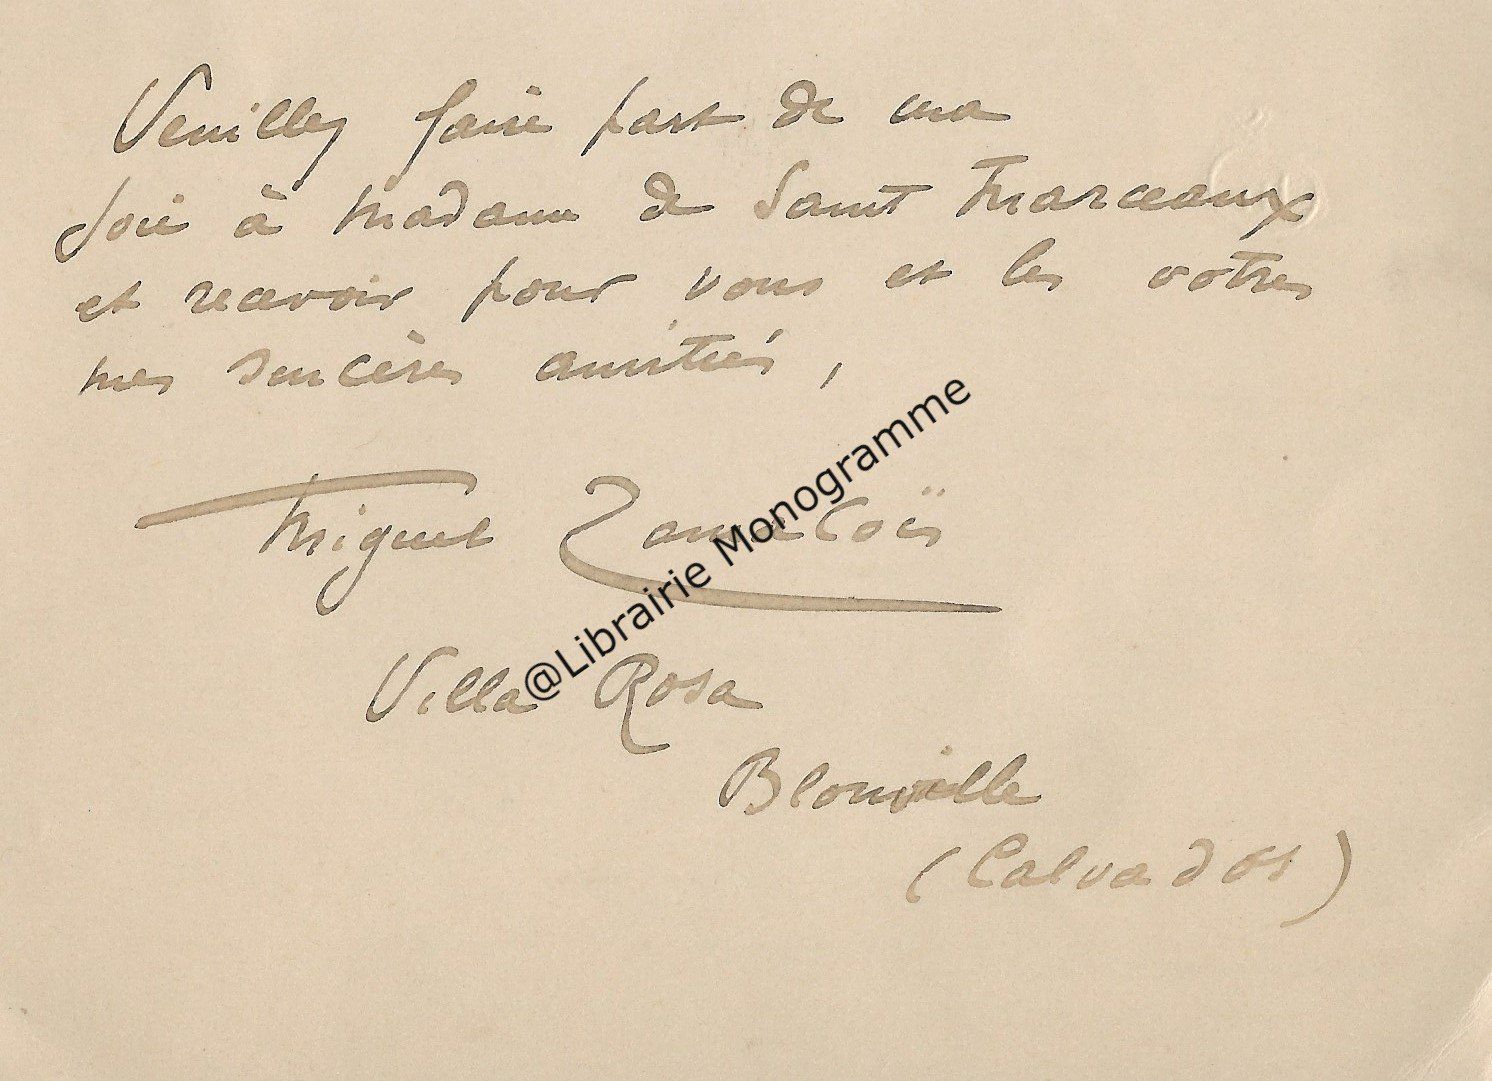 Veuillez faire part de ma
joie à Madame de Saint Marceaux
et recevoir pour vous et les votres
mes sincères amitiés,
Miguel Zamacoïs
@Librairie Monogramme
Villa Rosa
Blonville
(Calvados)